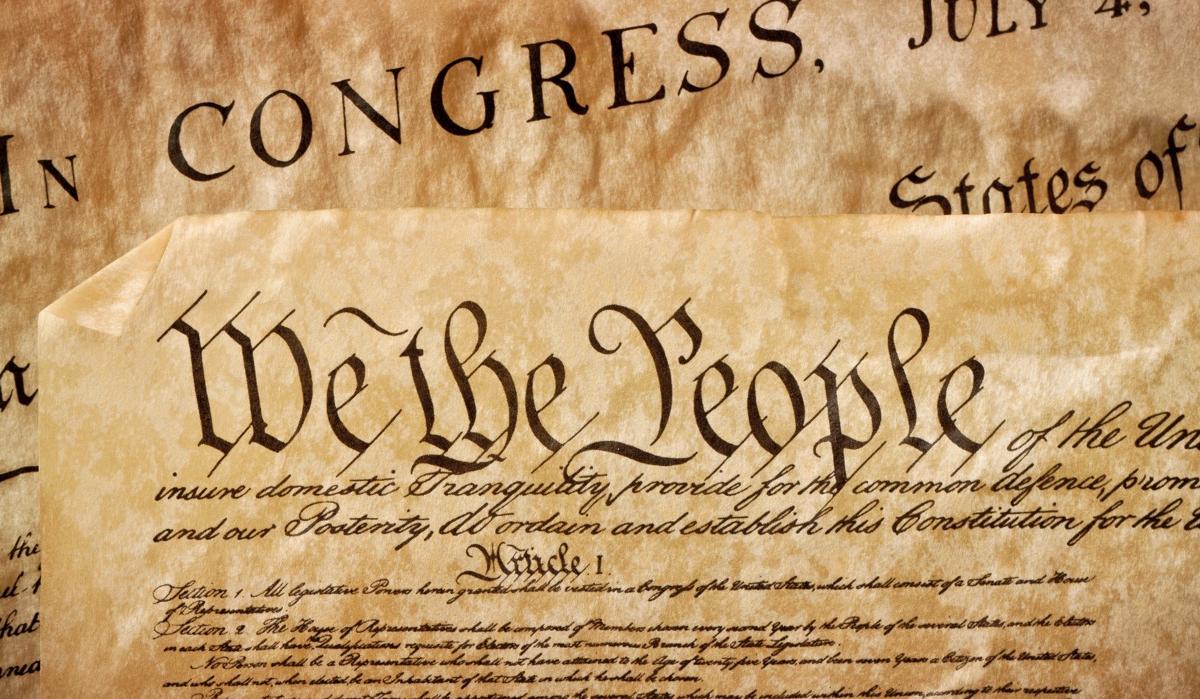 IN CONGRESS, JULY 4,
States of
a
We the People of the Un
insure domestic Tranquility, provide for the common defence, prom
and our Posterity, do ordain and establish this Constitution for the
Article I.
the
Section 1. All legislative Powers herein granted shall be vested in a Congress of the United States, which shall consist of a Senate and House
of Representatives.
that
Section 2. The House of Representatives shall be composed of Members chosen every second Year by the People of the several States, and the Electors
in each State shall have the Qualifications requisite for Electors of the most numerous Branch of the State Legislature.
No Person shall be a Representative who shall not have attained to the Age of twenty five Years, and been seven Years a Citizen of the United States,
and who shall not, when elected, be an Inhabitant of that State in which he shall be chosen.
shall be apportioned among the several States which may be included within this Union, according to their respective